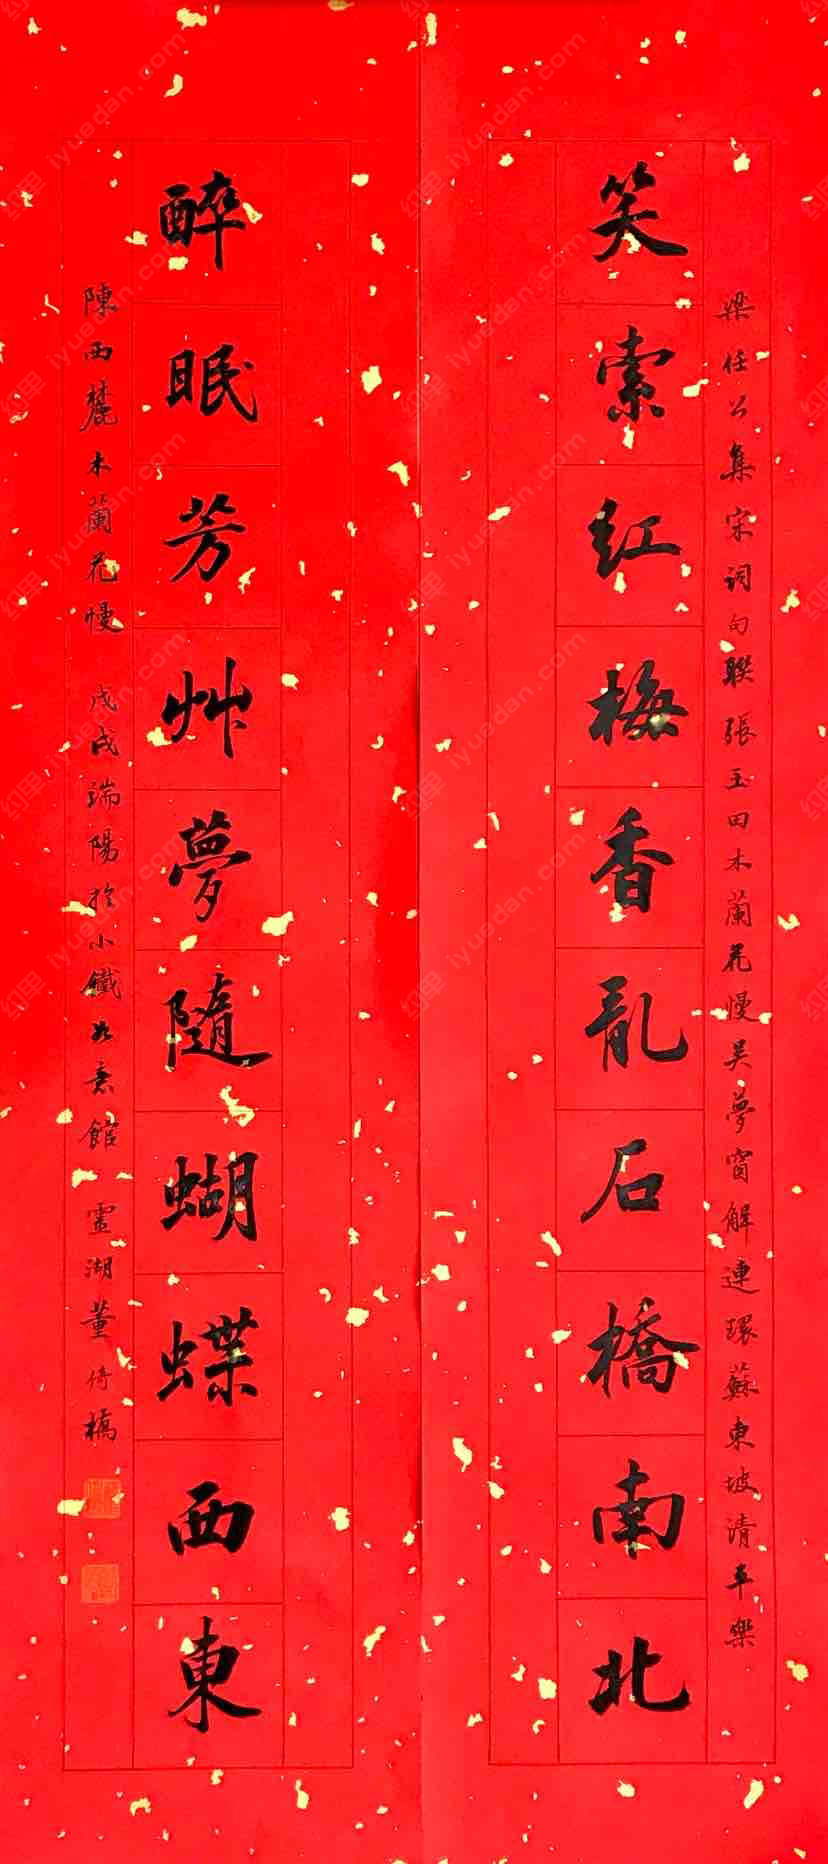 笑索紅梅香亂石橋南北
梁任公集宋詞句聯張玉田木蘭花慢吴夢窗解連環蘇東坡清平樂
醉眠芳艸夢隨蝴蝶西東
陳西麓木蘭花慢 戊戌端陽於小鐵如意館 靈湖董倚橋
约里 iyuedan.com